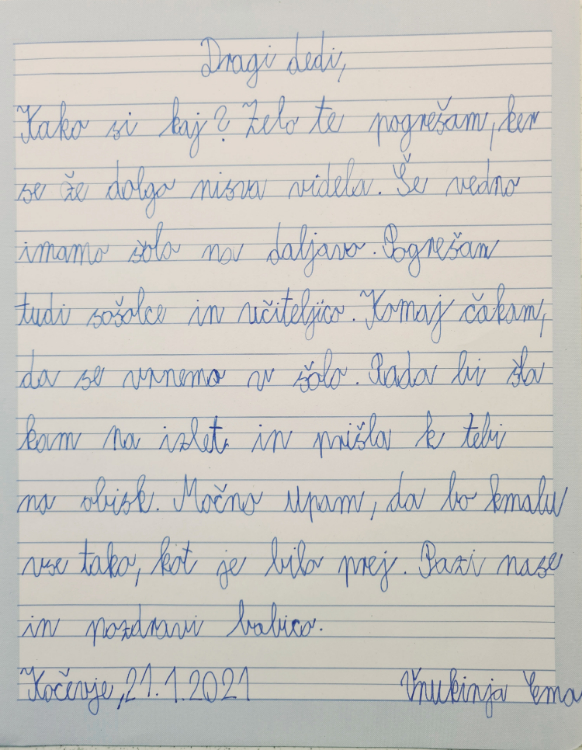 Dragi dedi,
Kako si kaj? Zelo te pogrešam, ker
se že dolgo nisva videla. Še vedno
imamo šolo na daljavo. Pogrešam
tudi sošolce in učiteljico. Komaj čakam,
da se vrnemo v šolo. Rada bi šla
kam na izlet in prišla k tebi
na obisk. Močno upam, da bo kmalu
vse tako, kot je bilo prej. Pazi nase
in pozdravi babico.
Kočevje, 21.1.2021 Vnukinja Ema